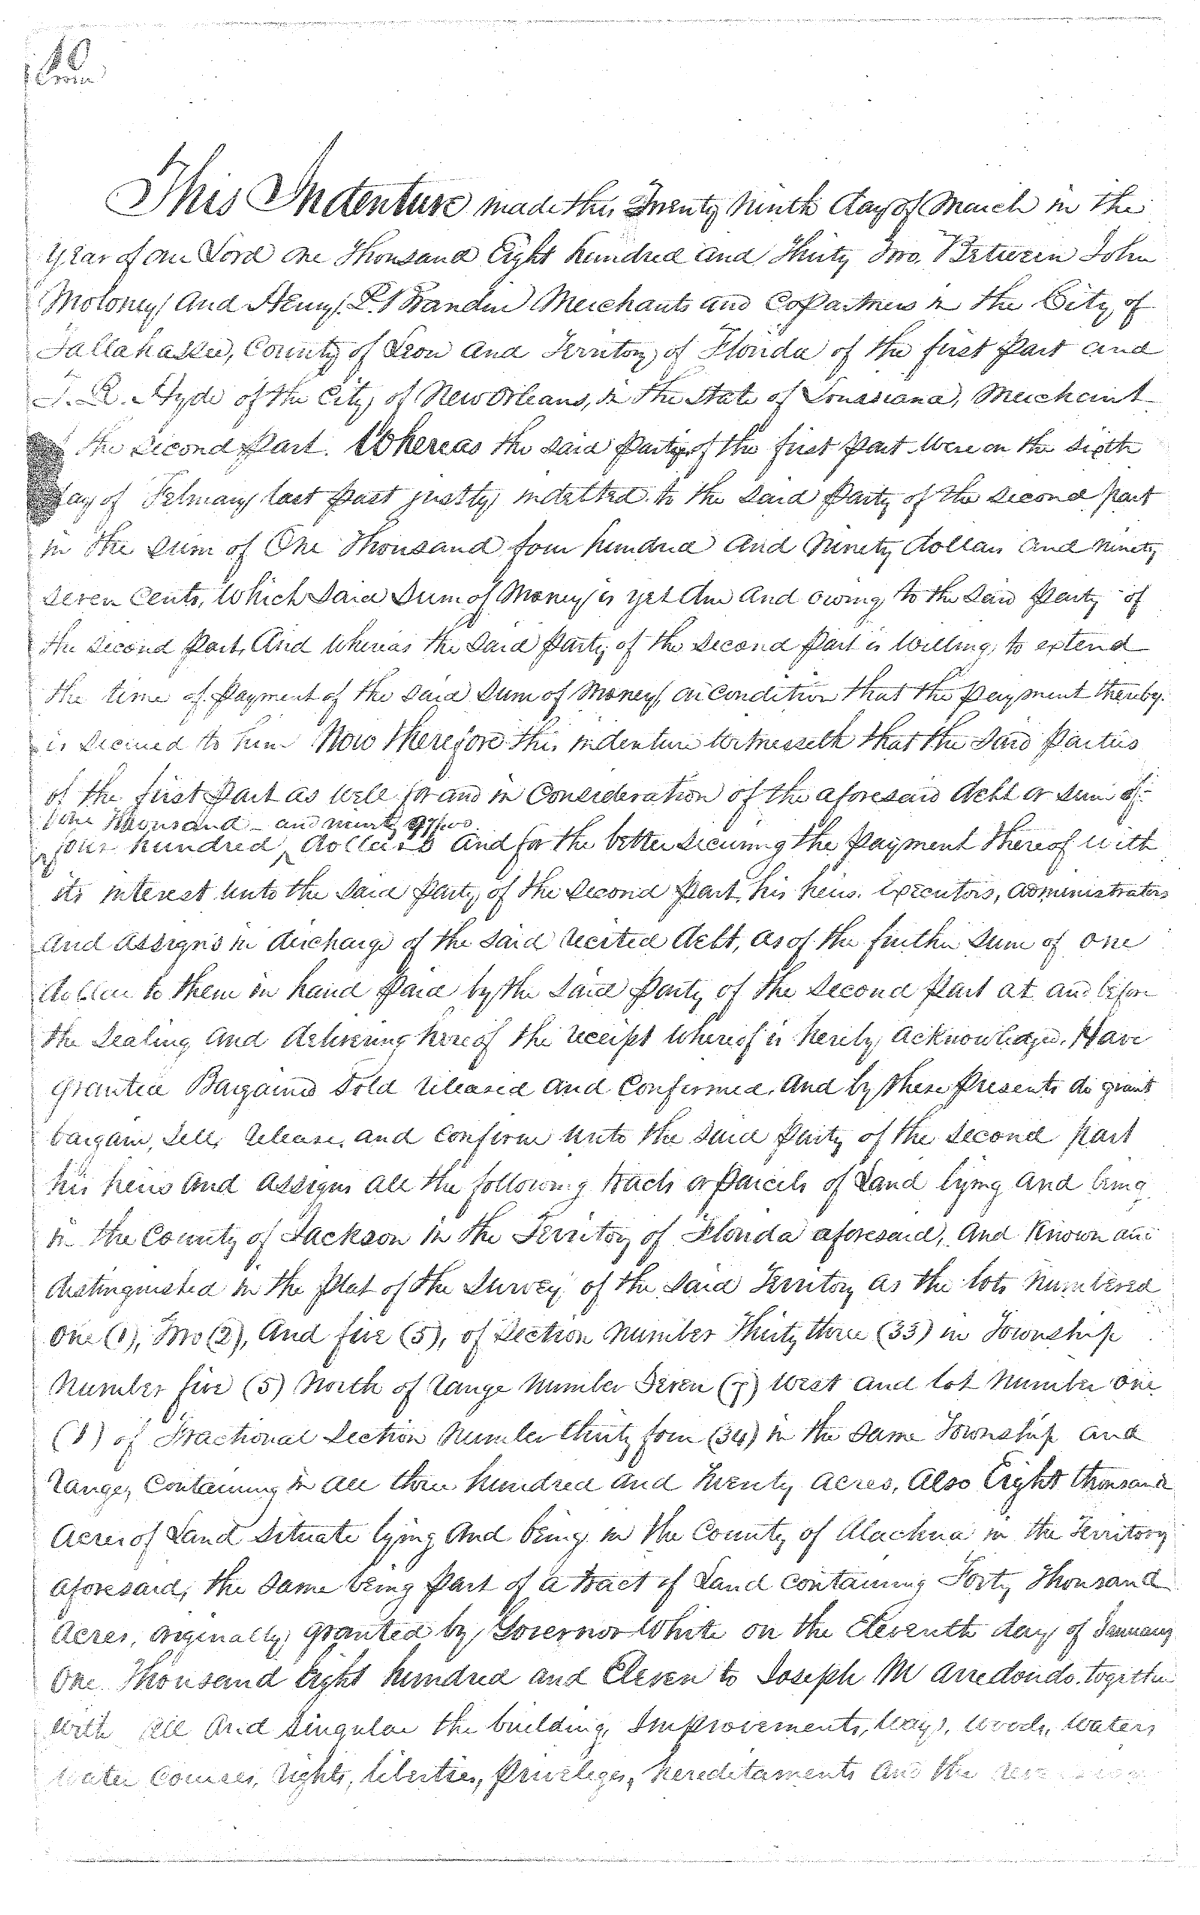 10
This Indenture made this Twenty Ninth day of March in the
Year of our Lord one Thousand Eight hundred and Thirty Two. Between John
Moloney and Henry P. Brandin Merchants and Copartners in the City of
Tallahassee, County of Leon and Territory of Florida of the first Part and
T. R. Hyde of the City of New Orleans, in the State of Louisiana, Merchant
the second Part. Whereas the said Parties of the first Part were on the sixth
day of February last past justly indetted to the said Party of the second part
in the sum of One Thousand four hundred and Ninety dollars and ninety
seven Cents, Which said Sum of Money is yet due and owing to the said Party of
the second Part, And whereas the said Party of the second Part is Willing to extend
the time of payment of the said Sum of Money, on condition that the payment thereby
is secured to him Now Therefore this indenture Witnesseth that the said Parties
of the first Part as well for and in Consideration of the aforesaid debt or sum of
one thousand and ninety 97/100
four hundred dollars and for the better securing the payment thereof with
its interest unto the said Party of the second Part, his heirs. Executors, administrators
and assigns in discharge of the said recited debt, as of the further sum of one
dollar to them in hand Paid by the said Party of the second Part at and before
the sealing and delivering hereof the receipt whereof is hereby acknowledged. Have
granted Bargained Sold released and Confirmed, And by these Presents do grant
bargain, Sell, release, and confirm unto the said Party of the second part
his heirs and assigns all the following tracts or parcels of Land lying and being
in the County of Jackson in the Territory of Florida aforesaid, and Known and
distinguished in the Plat of the Survey of the said Territory as the lots numbered
One (1), Two (2), And five (5), of Section number Thirty three (33) in Township
Number five (5) North of range number Seven (7) West and lot number one
(1) of Fractional Section number thirty four (34) in the same Township and
range, Containing in all three hundred and twenty acres, Also Eight thousand
Acres of Land situate lying and being in the County of Alachua in the Territory
aforesaid, the same being part of a tract of Land containing Forty Thousand
Acres, originally granted by Governor White on the Eleventh day of January
One Thousand Eight hundred and Eleven to Joseph M Arredondo. together
with all and singular the building, Improvements, Ways, Woods, Waters
water courses, rights, liberties, privileges, hereditaments and the